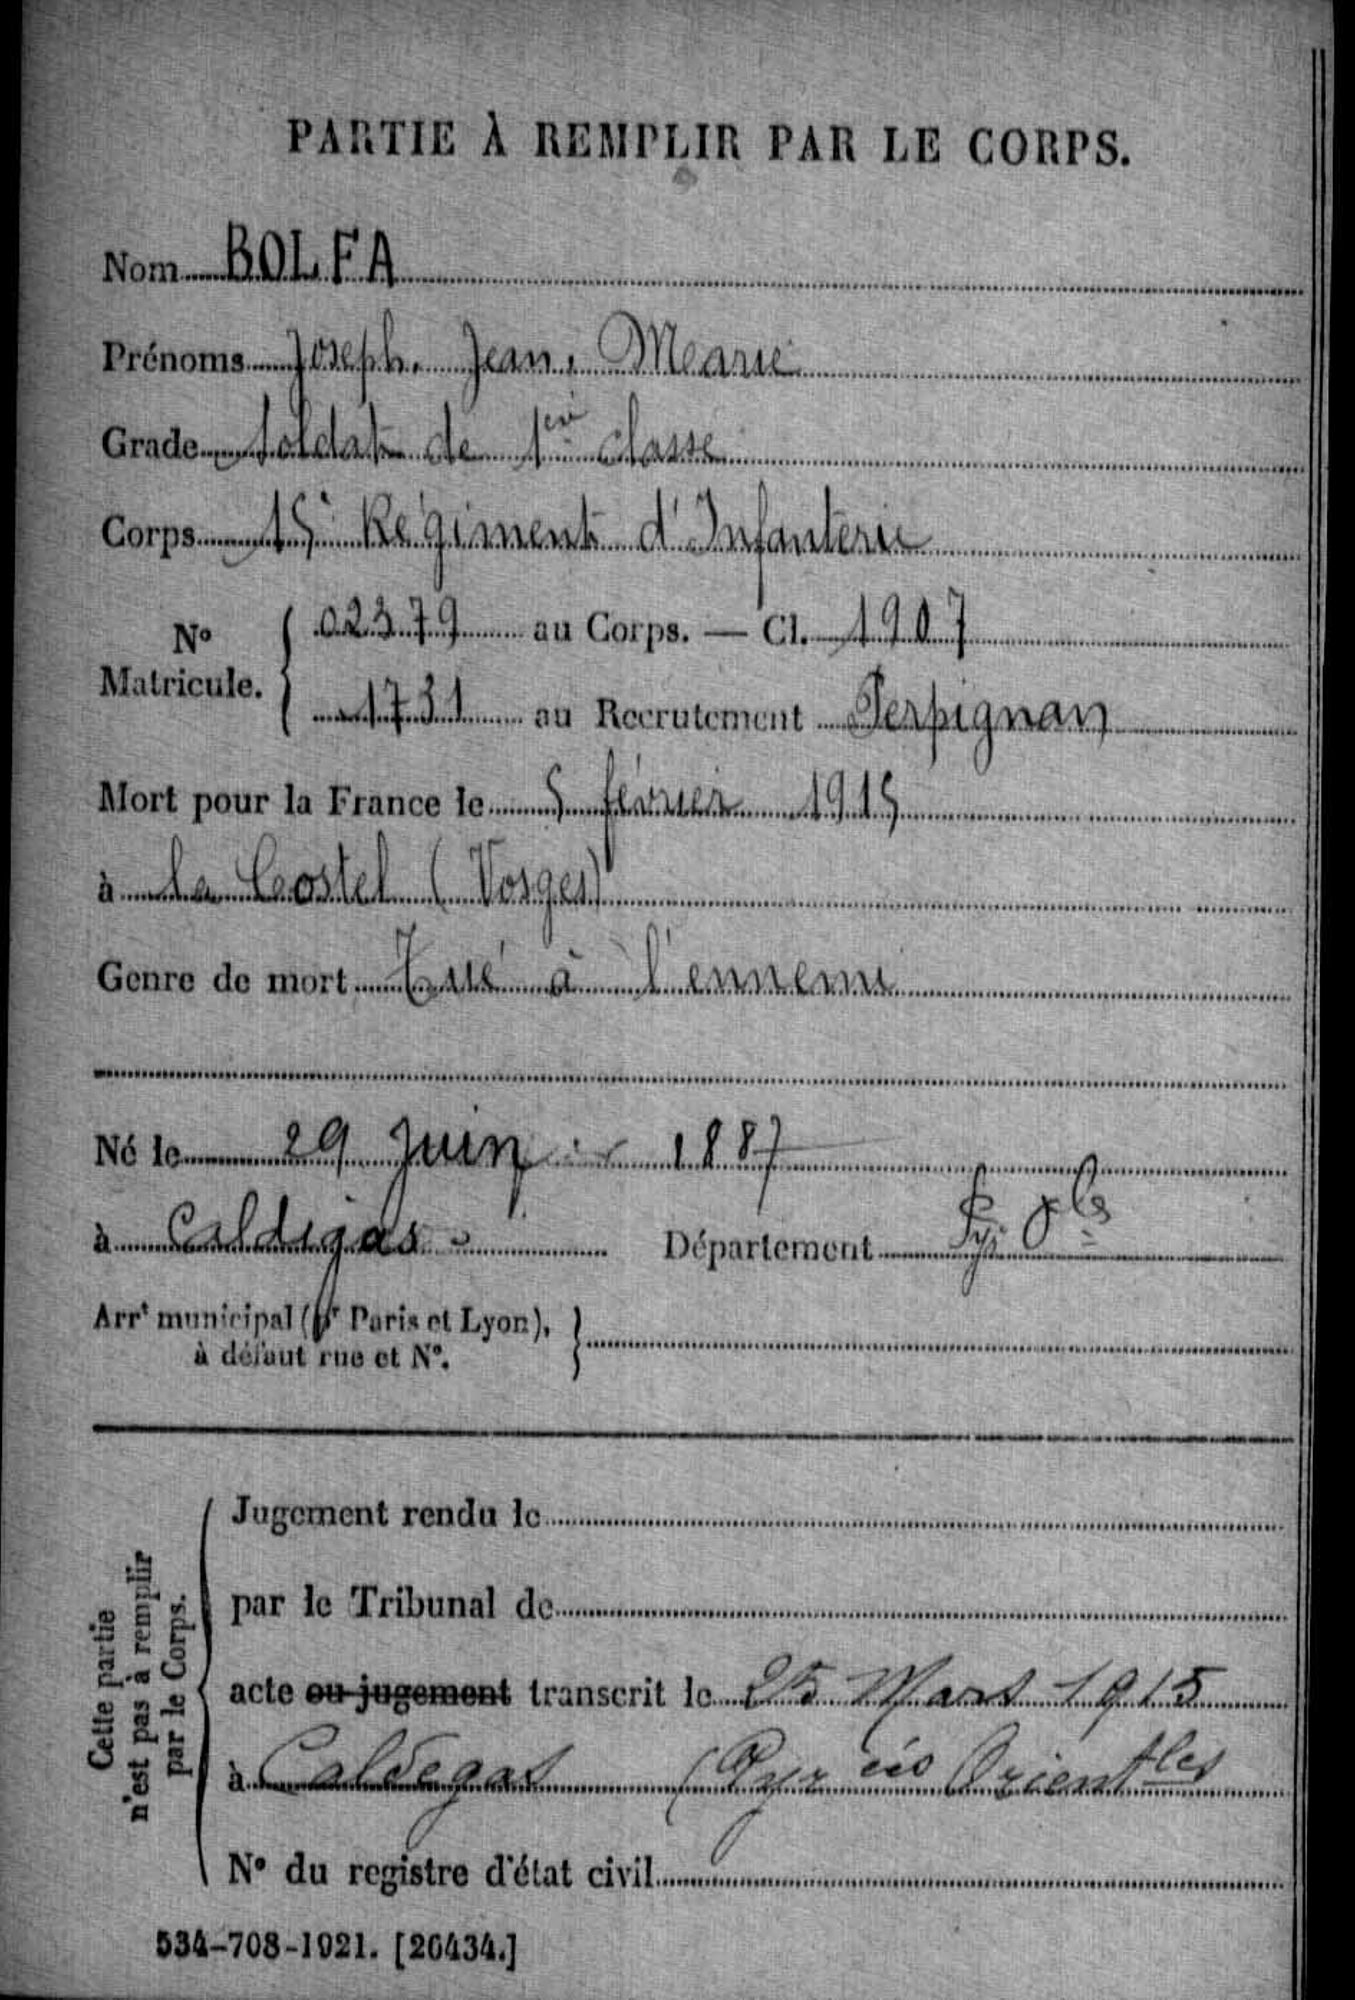 PARTIE À REMPLIR PAR LE CORPS.
Nom BOLFA
Prénoms Joseph, Jean, Marie
Grade Soldat de 1ère classe
Corps 15e Régiment d'Infanterie
No Matricule. { 02379 au Corps. — Cl. 1907
1731 au Recrutement Perpignan
Mort pour la France le 5 février 1915
à la Costel (Vosges)
Genre de mort Tué à l'ennemi
Né le 29 Juin 1887
à Caldégas Département Py. Oles
Arrt municipal (pr Paris et Lyon), à défaut rue et No. }
Cette partie n'est pas à remplir par le Corps.
Jugement rendu le
par le Tribunal de
acte ou jugement transcrit le 25 Mars 1915
à Caldegas (Pyrées Orientles
No du registre d'état civil
534-708-1921. [26434.]